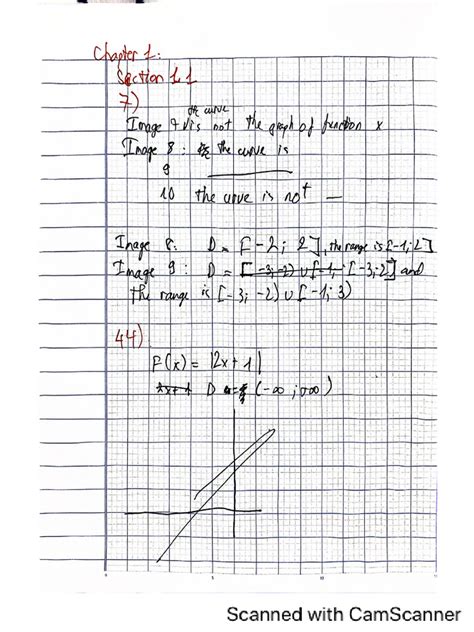 Chapter 1:
Section 1.1
7)
the curve
Image 7 is not the graph of function x
Image 8 : the curve is
9
10 the curve is not —
Image 8: D = [-2; 2], the range is [-1; 2]
Image 9: D = [-3;-2) ∪ [-1; [-3;2] and
the range is [-3; -2) ∪ [-1; 3)
44)
F(x) = |2x+1|
2x+1 D = (-∞ ; +∞)
Scanned with CamScanner